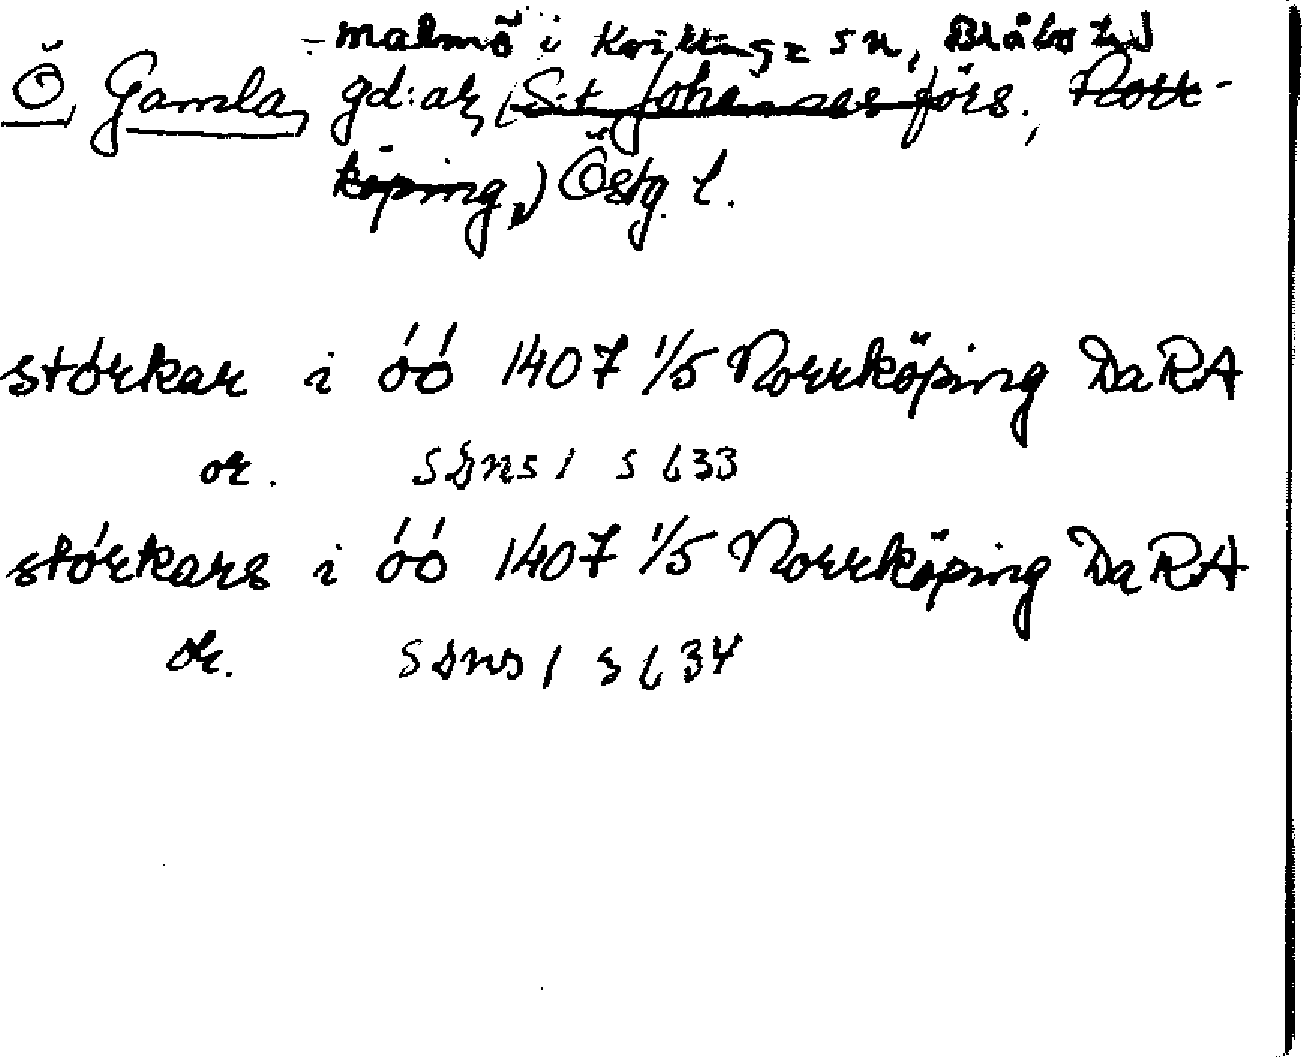 = Malmö i Kvillinge sn, Bråbo hd
Ö, Gamla, gd:ar, (S:t Johannes förs., Norr-
köping,) Östg. l.
stórkar i óó 1407 1/5 Norrköping DaRA
or. SDns 1 s 633
stórkars i óó 1407 1/5 Norrköping DaRA
or. SDns 1 s 634